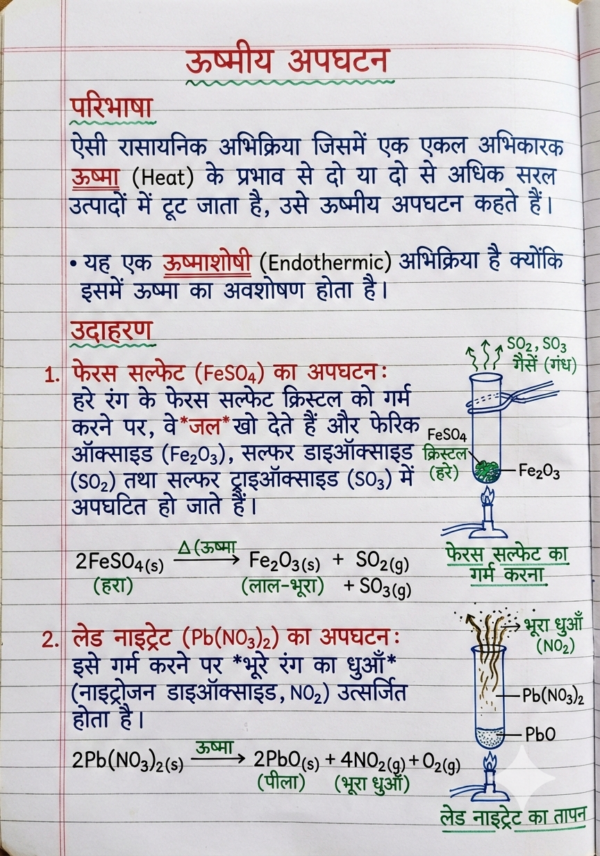 ऊष्मीय अपघटन
परिभाषा
ऐसी रासायनिक अभिक्रिया जिसमें एक एकल अभिकारक
ऊष्मा (Heat) के प्रभाव से दो या दो से अधिक सरल
उत्पादों में टूट जाता है, उसे ऊष्मीय अपघटन कहते हैं।
• यह एक ऊष्माशोषी (Endothermic) अभिक्रिया है क्योंकि
इसमें ऊष्मा का अवशोषण होता है।
उदाहरण
1. फेरस सल्फेट (FeSO₄) का अपघटन:
हरे रंग के फेरस सल्फेट क्रिस्टल को गर्म
करने पर, वे *जल* खो देते हैं और फेरिक
ऑक्साइड (Fe₂O₃), सल्फर डाइऑक्साइड
(SO₂) तथा सल्फर ट्राइऑक्साइड (SO₃) में
अपघटित हो जाते हैं।
SO₂, SO₃
गैसें (गंध)
FeSO₄
क्रिस्टल
(हरे)
Fe₂O₃
फेरस सल्फेट का
गर्म करना
Δ(ऊष्मा
2FeSO₄(s) → Fe₂O₃(s) + SO₂(g)
(हरा) (लाल-भूरा) + SO₃(g)
2. लेड नाइट्रेट (Pb(NO₃)₂) का अपघटन:
इसे गर्म करने पर *भूरे रंग का धुआँ*
(नाइट्रोजन डाइऑक्साइड, NO₂) उत्सर्जित
होता है।
भूरा धुआँ
(NO₂)
Pb(NO₃)₂
PbO
ऊष्मा
2Pb(NO₃)₂(s) → 2PbO(s) + 4NO₂(g) + O₂(g)
(पीला) (भूरा धुआँ)
लेड नाइट्रेट का तापन